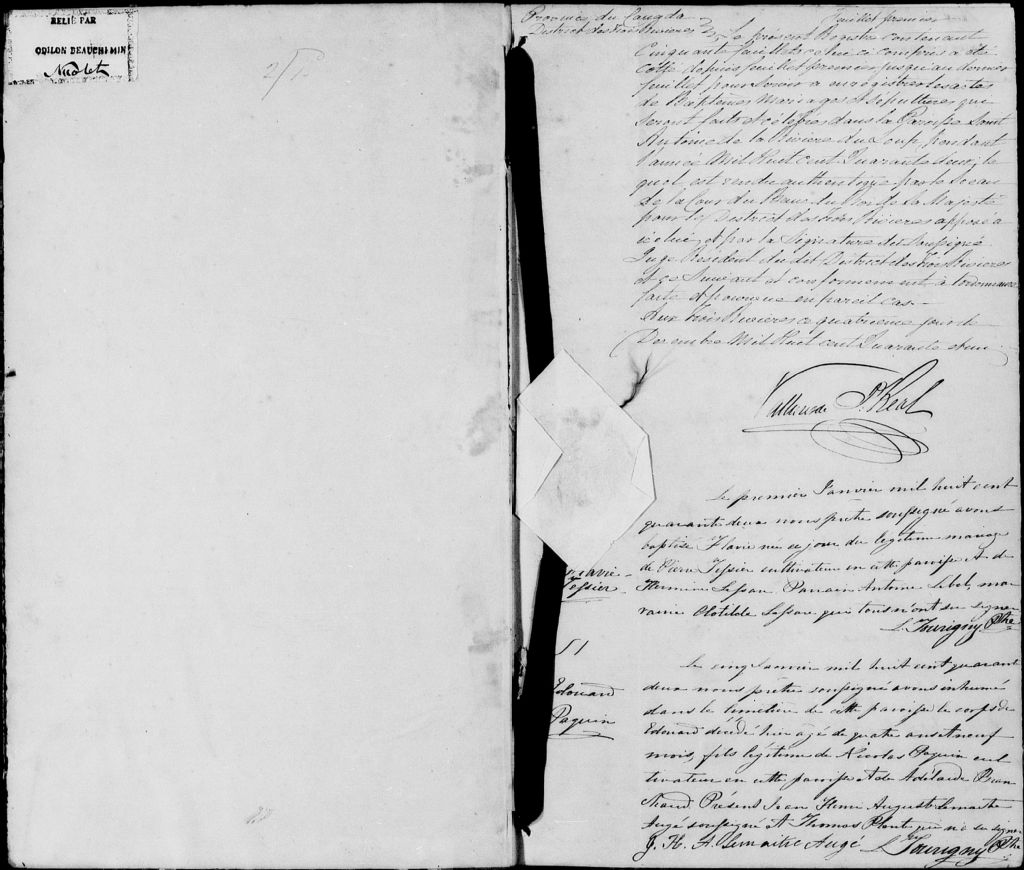 RELIÉ PAR
ODILON BEAUCHEMIN
Nicolet
Province du Canada
District des trois Rivières
feuillet premier
Le present Registre contenant
Cinquante feuillets celui ci compris a été
côtté depuis feuillet premier jusqu'au dernier
feuillet pour servir à enregistrer les actes
de Baptêmes Mariages et Sépultures qui
seront faits et célébrés dans la Paroisse Saint
Antoine de la Rivière du Loup, pendant
l'année Mil Huit cent Quarante deux, le
quel est rendu authentique par le Sceau
de la Cour du Banc du Roi de Sa Majesté
pour le District des trois Rivières apposé à
icelui, et par la Signature du Soussigné
Juge Résident du dit District des trois Rivières
et ce Suivant et conformément à l'ordonnance
faite et pourvue en pareil cas.
Aux Trois Rivières ce quatrième jour de
Décembre Mil Huit cent Quarante et un
Vallières de St. Real
Le premier Janvier mil huit cent
quarante deux nous prêtre soussigné avons
baptisé Flavie née ce jour du légitime mariage
de Pierre Tessier cultivateur en cette paroisse et de
Hermine Lessau. Parrain Antoine Lebel, mar
raine Clotilde Lessau qui tous n'ont su signer
L. Tourigny Ptre
Flavie
Tessier
S1
Edouard
Paquin
Le cinq Janvier mil huit cent quarante
deux nous prêtre soussigné avons inhumé
dans le cimetière de cette paroisse le corps de
Edouard décédé hier agé de quatre ans et neuf
mois, fils légitime de Nicolas Paquin cul
tivateur en cette paroisse et de Adelaïde Blan
chard. Présent Jean Henri Auguste Lemaitre
Augé soussigné et Thomas Plante qui n'a su signer
J. H. A. Lemaitre Augé
L. Tourigny Ptre